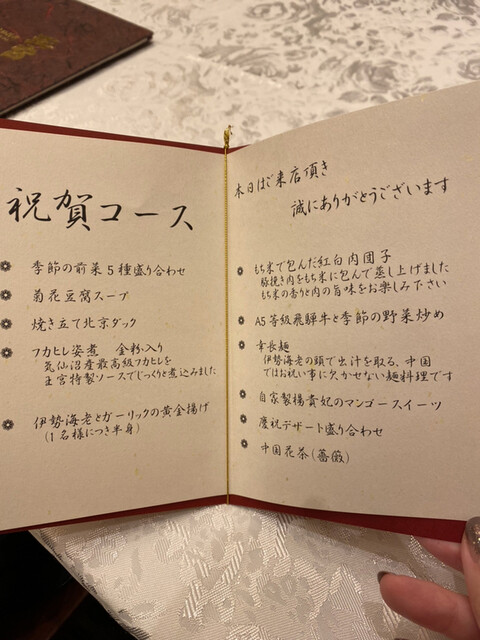 祝賀コース
季節の前菜5種盛り合わせ
菊花豆腐スープ
焼き立て北京ダック
フカヒレ姿煮 金粉入り
気仙沼産最高級フカヒレを
王宮特製ソースでじっくりと煮込みました
伊勢海老とガーリックの黄金揚げ
(1名様につき半身)
本日はご来店頂き
誠にありがとうございます
もち米で包んだ紅白肉団子
豚挽き肉をもち米に包んで蒸し上げました
もち米の香りと肉の旨味をお楽しみ下さい
A5等級飛騨牛と季節の野菜炒め
幸長麺
伊勢海老の頭で出汁を取る、中国
ではお祝い事に欠かせない麺料理です
自家製楊貴妃のマンゴースイーツ
慶祝デザート盛り合わせ
中国花茶(薔薇)